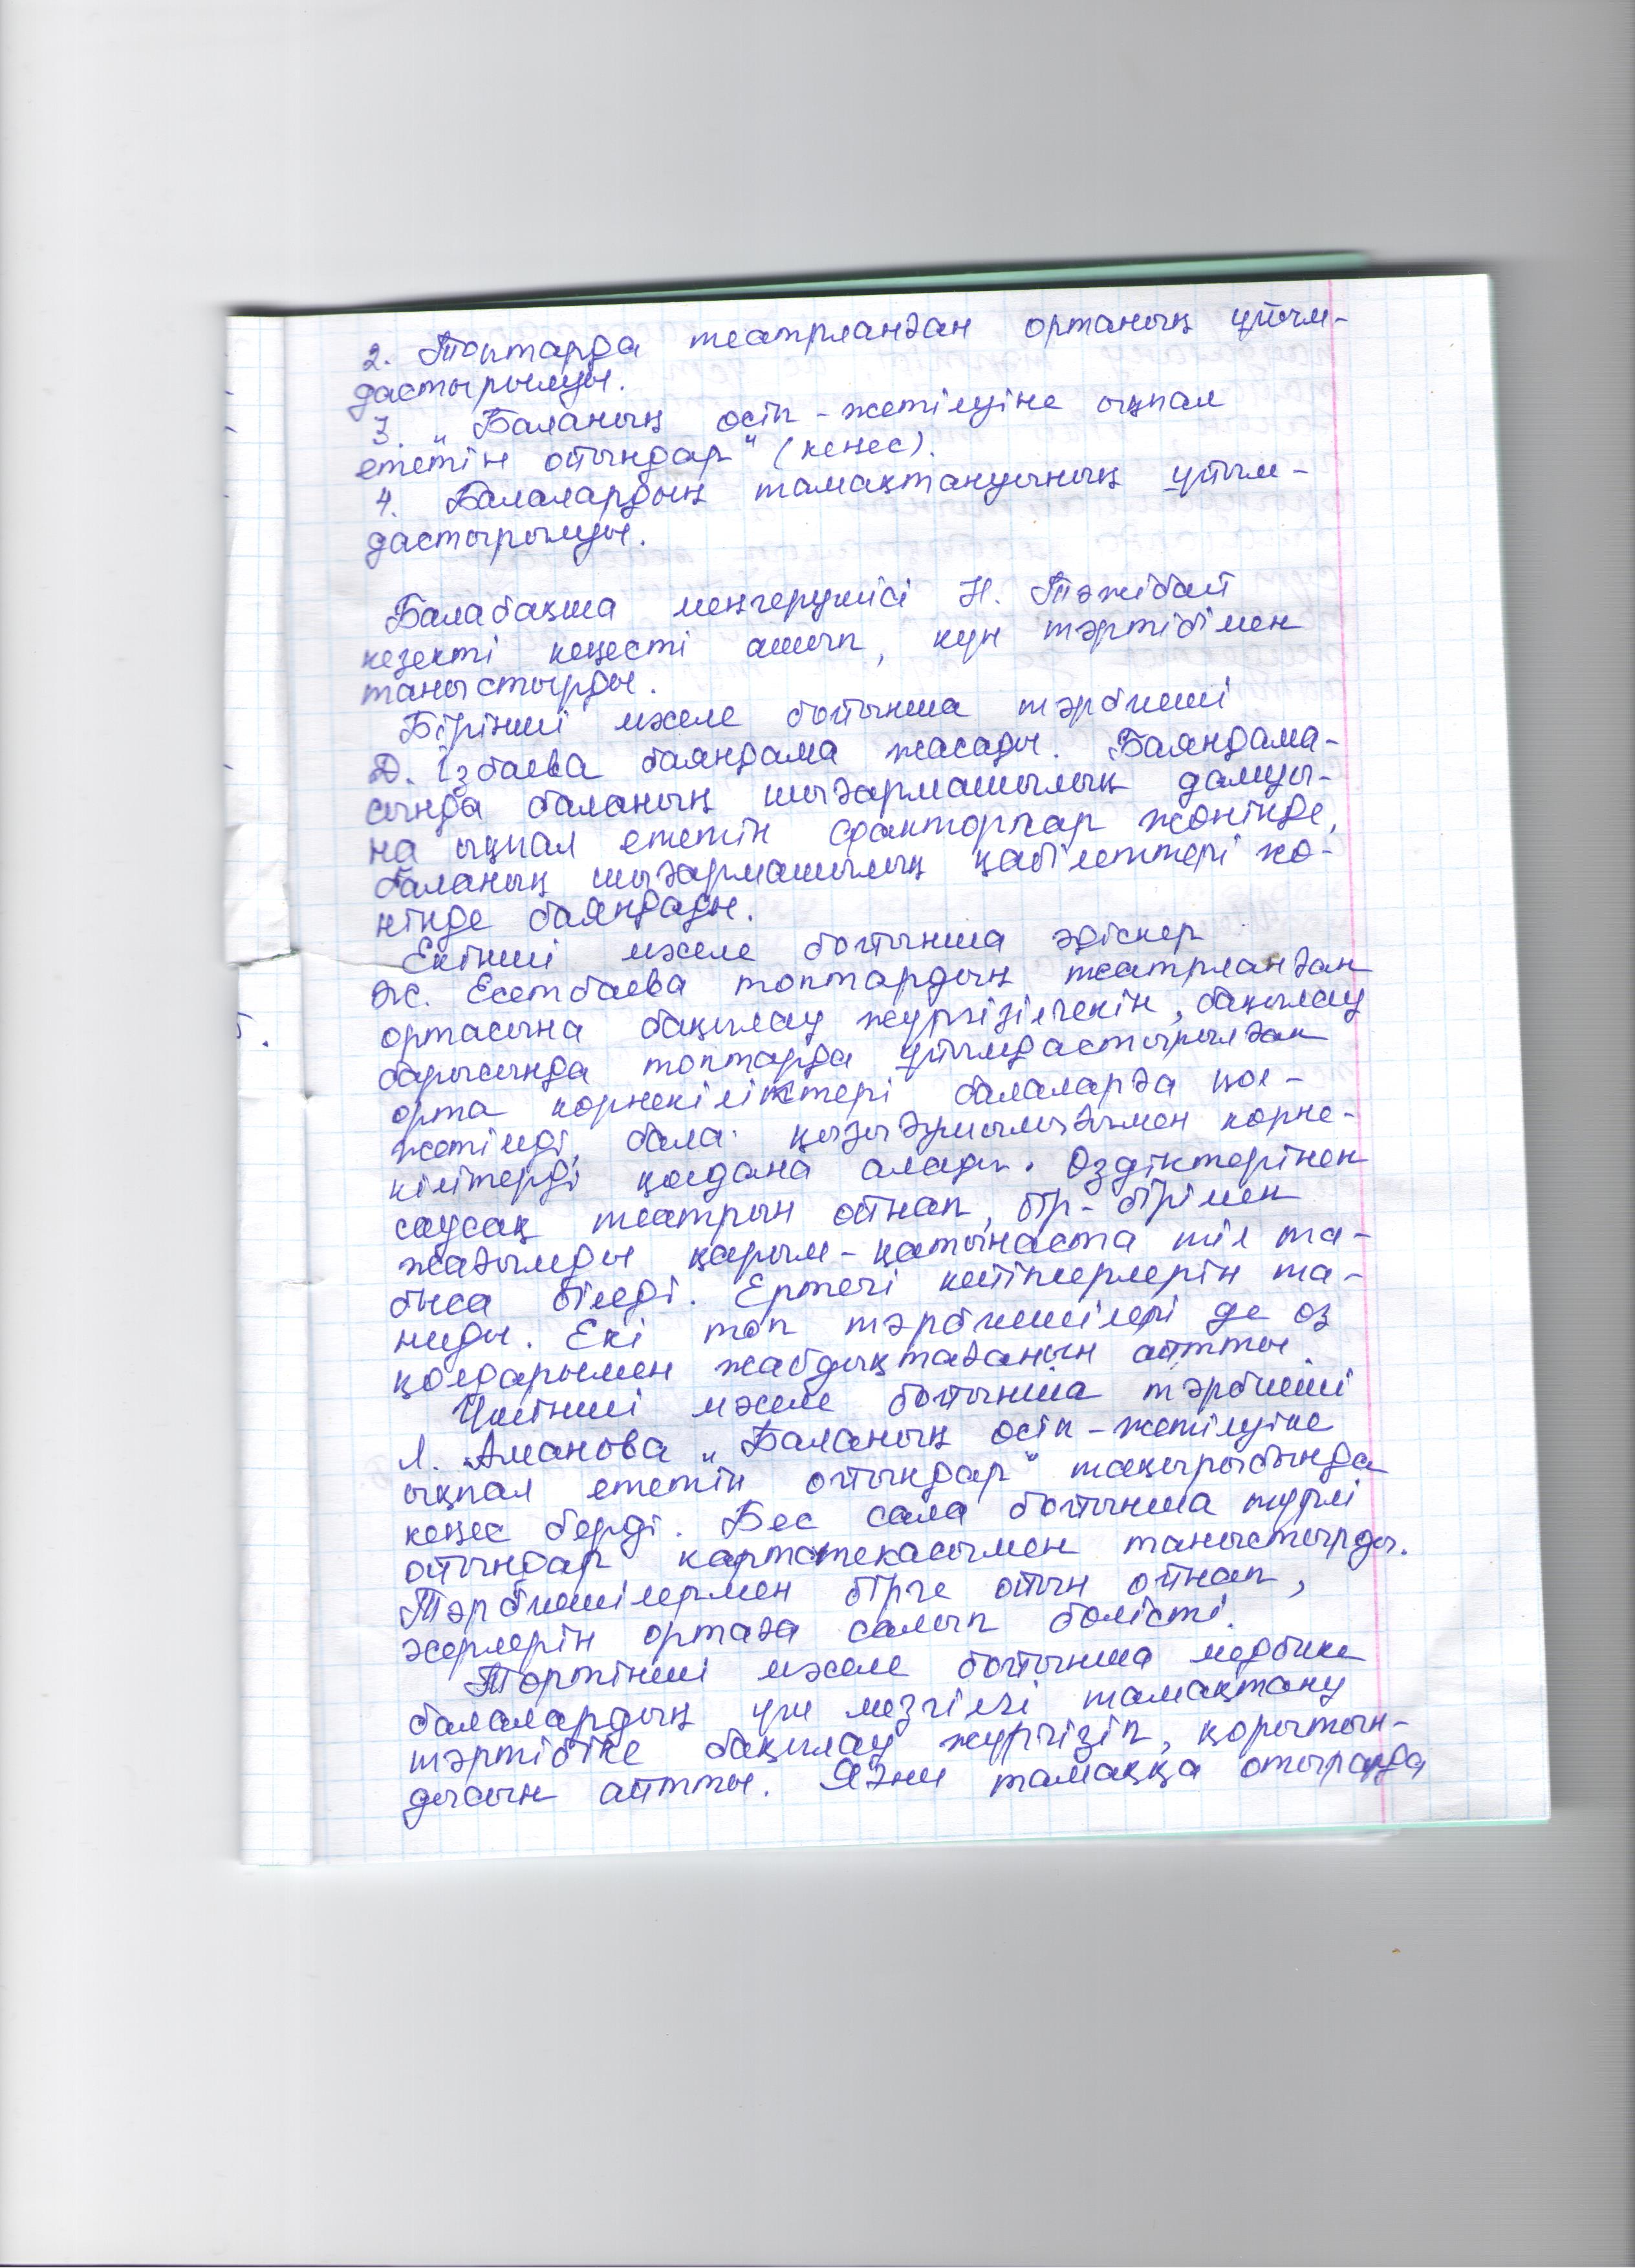 2. Топтарда театрланған ортаның ұйым-
дастырылуы.
3. „Баланың өсіп-жетілуіне ықпал
ететін ойындар" (кеңес).
4. Балалардың тамақтануының ұйым-
дастырылуы.
Балабақша меңгерушісі Н. Тәжібай
кезекті кеңесті ашып, күн тәртібімен
таныстырды.
Бірінші мәселе бойынша тәрбиеші
Д. Ізбаева баяндама жасады. Баяндама-
сында баланың шығармашылық дамуы-
на ықпал ететін факторлар жөнінде,
баланың шығармашылық қабілеттері жө-
нінде баяндады.
Екінші мәселе бойынша әдіскер
Ж. Есетбаева топтардың театрланған
ортасына бақылау жүргізілгенін, бақылау
барысында топтарда ұйымдастырылған
орта көрнекіліктері балаларға қол-
жетімді, бала қызығушылығымен көрне-
кілітерді қолдана алады. Өздіктерінен
саусақ театрын ойнап, бір-бірімен
жағымды қарым-қатынаста тіл та-
быса біледі. Ертегі кейіпкерлерін та-
ниды. Екі топ тәрбиешілері де өз
қолдарымен жабдықтағанын айтты.
Үшінші мәселе бойынша тәрбиеші
Л. Аманова „Баланың өсіп-жетілуіне
ықпал ететін ойындар" тақырыбында
кеңес берді. Бес сала бойынша түрлі
ойындар картотекасымен таныстырды.
Тәрбиешілермен бірге ойын ойнап,
әсерлерін ортаға салып бөлісті.
Төртінші мәселе бойынша медбике
балалардың үш мезгілгі тамақтану
тәртібіне бақылау жүргізіп, қорытын-
дысын айтты. Яғни тамаққа отырғанда